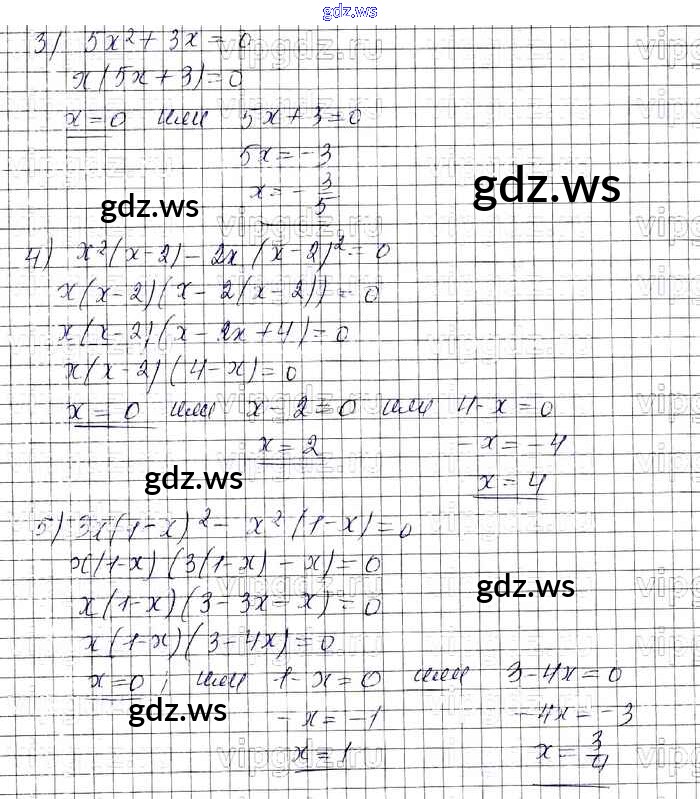 gdz.ws
3) 5x² + 3x = 0
x(5x + 3) = 0
x = 0 или 5x + 3 = 0
5x = -3
x = - 3/5
gdz.ws
gdz.ws
4) x²(x - 2) - 2x (x - 2)² = 0
x(x - 2)(x - 2(x - 2)) = 0
x(x - 2)(x - 2x + 4) = 0
x(x - 2)(4 - x) = 0
x = 0 или x - 2 = 0 или 4 - x = 0
x = 2 -x = -4
x = 4
gdz.ws
5) 3x(1 - x)² - x²(1 - x) = 0
x(1 - x)(3(1 - x) - x) = 0
gdz.ws
x(1 - x)(3 - 3x - x) = 0
x(1 - x)(3 - 4x) = 0
x = 0; или 1 - x = 0 или 3 - 4x = 0
gdz.ws
-x = -1 -4x = -3
x = 1 x = 3/4